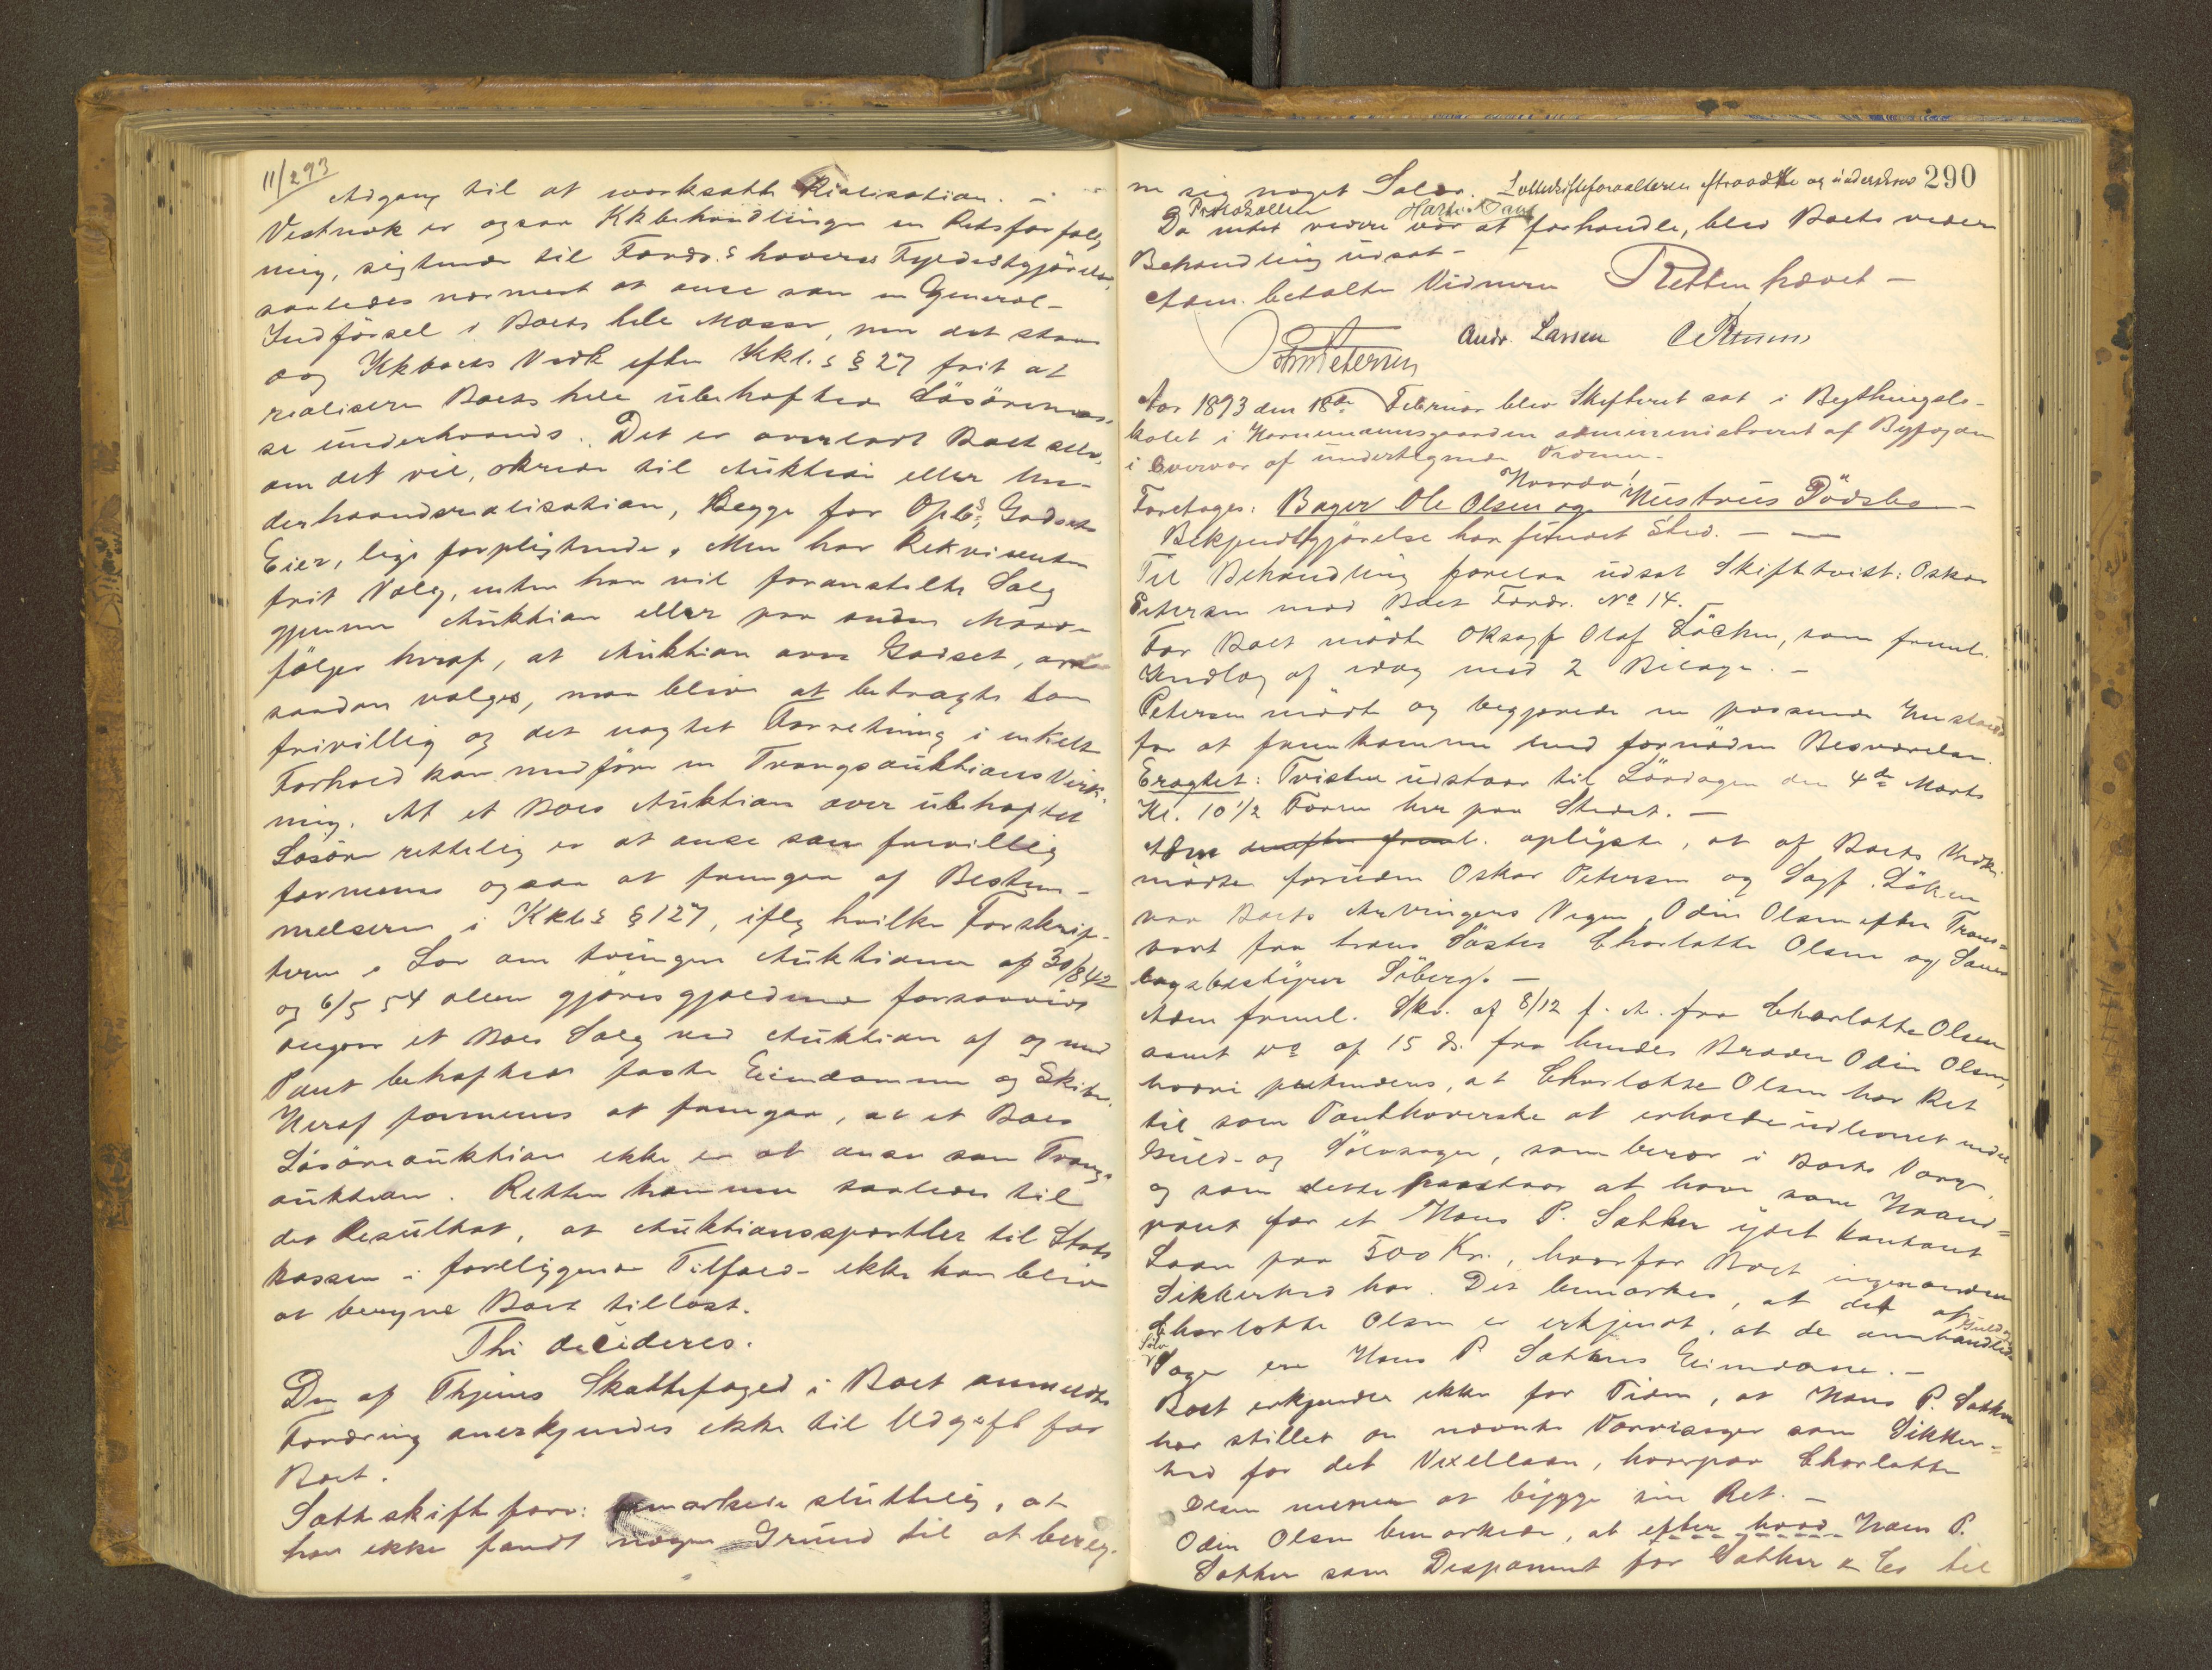 11/2 93
Adgang til at iværksætte Realisation. –
Vistnok er ogsaa Kkbehandlingen en Retsforfølg
ning, sigtende til Fordr.s haveres Fyldestgjörelse,
saaledes nærmest at anse som en General-
Indförsel i Boets hele Masse, men det staar
og Kkboets Vedk efter Kkl.s § 27 frit at
realisere Boets hele ubehæftede Lösöremas
se underhaands. Det er overladt Boet selv,
om det vil, skride til Auktion eller Un-
derhaandsrealisation, Begge for Opb.s, Godsets
Eier, lige forpligtende. Men har Rekvirenten
frit Valg, enten han vil foranstalte Salg
gjennem Auktion eller paa anden Maade
fölger heraf, at Auktion over Godset, om
saadan vælges, maa blive at betragte som
frivillig og det uagtet Forretning i enkelt
Forhold kan medföre en Trangsauktions Virk-
ning. At et Boes Auktion over ubehæftet
Lösöre rettelig er at anse som frivillig
formenes ogsaa at fremgaa af Bestem-
melserne i Kkl.s § 127, iflg hvilke Forskrif-
terne i Lov om tvungne Auktioner af 30/8 42
og 6/5 54 alene gjöres gjældende forsaavidt
angaar et Boes Salg ved Auktion af og med
Pant behæftede faste Eiendomme og Skibe.
Heraf formenes at fremgaa, at et Boes
Lösöreauktion ikke er at anse som Tvangs
auktion. Retten kommer saaledes til
det Resultat, at Auktionssportler til Stats
kassen i foreliggende Tilfælde ikke kan blive
at beregne Boet tillast.
Thi decideres.
Den af Thjems Skattefoged i Boet anmeldte
Fordring anerkjendes ikke til Udgift for
Boet.
Sætteskifteforv: bemærkede sluttelig, at
han ikke fandt nogen Grund til at bereg-
290
ne sig noget Salær. Sætteskifteforvalteren fratraadte og underskrev
Protokollen
Da intet videre var at forhandle, blev Boets videre
Behandling udsat –
Adm. betalte Vidnerne Retten hævet –
Petersen Andr. Larsen
Aar 1893 den 18de Februar blev Skifteret sat i Bythingslo-
kalet i Hornemannsgaarden administreret af Byfogden
i Overvær af undertegnede Vidner.
Foretoges: Bager Ole Olsen og Hustrus Dödsbo –
Bekjendtgjörelse har fundet Sted. – —
Til Behandling forelaa udsat Skiftetvist: Oskar
Petersen mod Boet Fordr. No 14.
For Boet mödte Oksagf Olaf Löchen, som freml.
Indlæg af idag med 2 Bilage. –
Petersen mödte og begjærede en passende Henstand
for at fremkomme med fornöden Besvarelse.
Eragtet: Tvisten udstaar til Lördagen den 4de Marts
Kl. 10 1/2 Form her paa Stedet. –
Adm derefter freml. oplyste, at af Boets Vedk
mödte foruden Oskar Petersen og Sagf. Löchen
paa Boets Arvingers Vegne, Odin Olsen efter Trans-
port fra hans Söster Charlotte Olsen og Sam
lagsbestyrer Siberg. –
Adm freml. Skr. af 8/12 f. A. fra Charlotte Olsen
samt do af 15 ds. fra hendes Broder Odin Olsen,
hvori paastaaes, at Charlotte Olsen har Ret
til som Panthaverske at erholde udleveret endel
Guld- og Sölvsager, som beror i Boets Varge.
og som dette paastaar at have som Haand-
pant for et Hans P. Sakker ydet kontant
Laan paa 500 Kr., hvorfor Boet ingen anden
Sikkerhed har. Det bemærkes, at det af
Charlotte Olsen er erkjendt, at de omhandlede Guld og
Sölv Sager ere Hans P Sakkers Eiendom. –
Boet erkjender ikke for Tiden, at Hans P. Sakker
har stillet de nævnte Varesager som Sikker-
hed for det Vexellaan, hvorpaa Charlotte
Olsen mener at bygge sin Ret. –
Odin Olsen bemærkede, at efter hvad Hans P.
Sakker som Disponent for Sakker & Co til